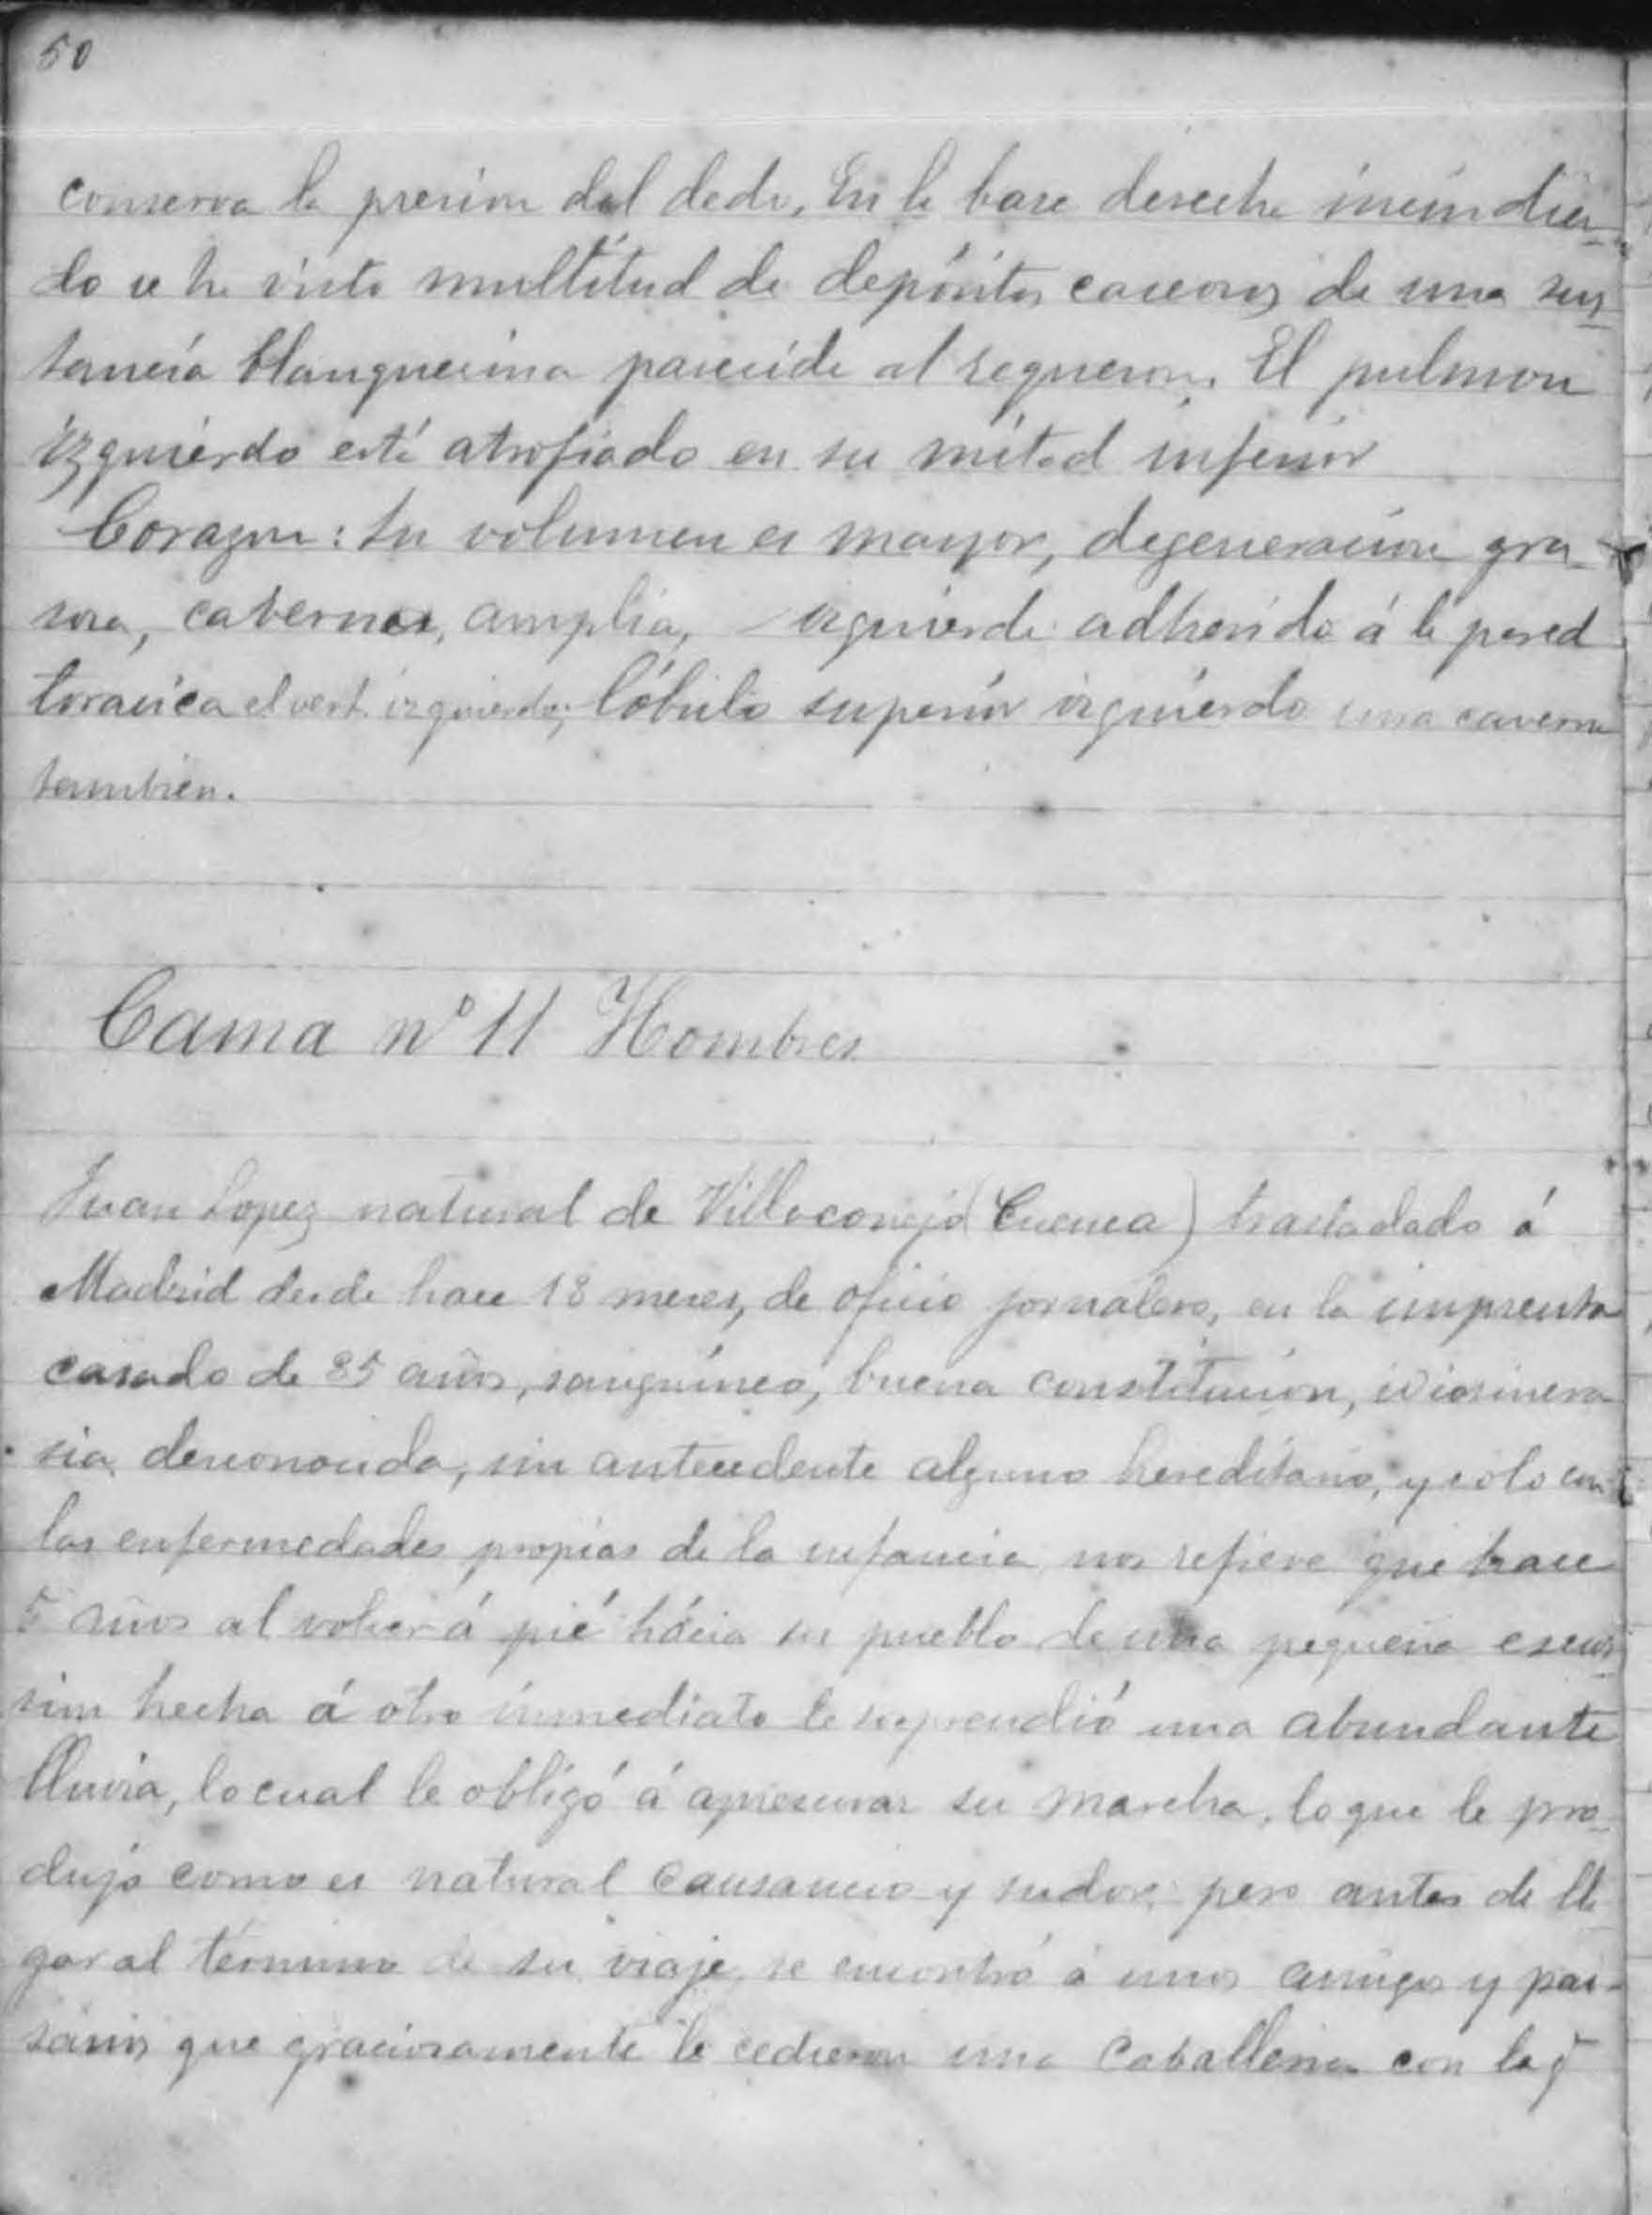 50
conserva la presion del dedo. En la base derecha incindien-
do se ha visto multitud de depósitos caseosos de una sus-
tancia blanquecina parecida al requeson. El pulmon
izquierdo está atrofiado en su mitad inferior
Corazon: su volumen es mayor, degeneracion gra-
sosa, cabernas, amplia, izquierdo adherido á la pared
toracica el vent. izquierdo; lóbulo superior izquierdo una caverna
tambien.
Cama nº 11 Hombres
Juan Lopez natural de Villaconejo (Cuenca) trasladado á
Madrid desde hace 18 meses, de oficio jornalero, en la imprenta
casado de 35 años, sanguíneo, buena constitucion, idiosincra-
sia desconocida, sin antecedente alguno hereditario, y solo con
las enfermedades propias de la infancia nos refiere que hace
5 años al volver á pié hácia su pueblo de una pequeña escur-
sion hecha á otro inmediato le sorprendió una abundante
lluvia, lo cual le obligó á apresurar su marcha, lo que le pro-
dujo como es natural cansancio y sudor, pero antes de lle
gar al término de su viaje, se encontró á unos amigos y pai-
sanos que graciosamente le cedieron una caballeria con la q̃